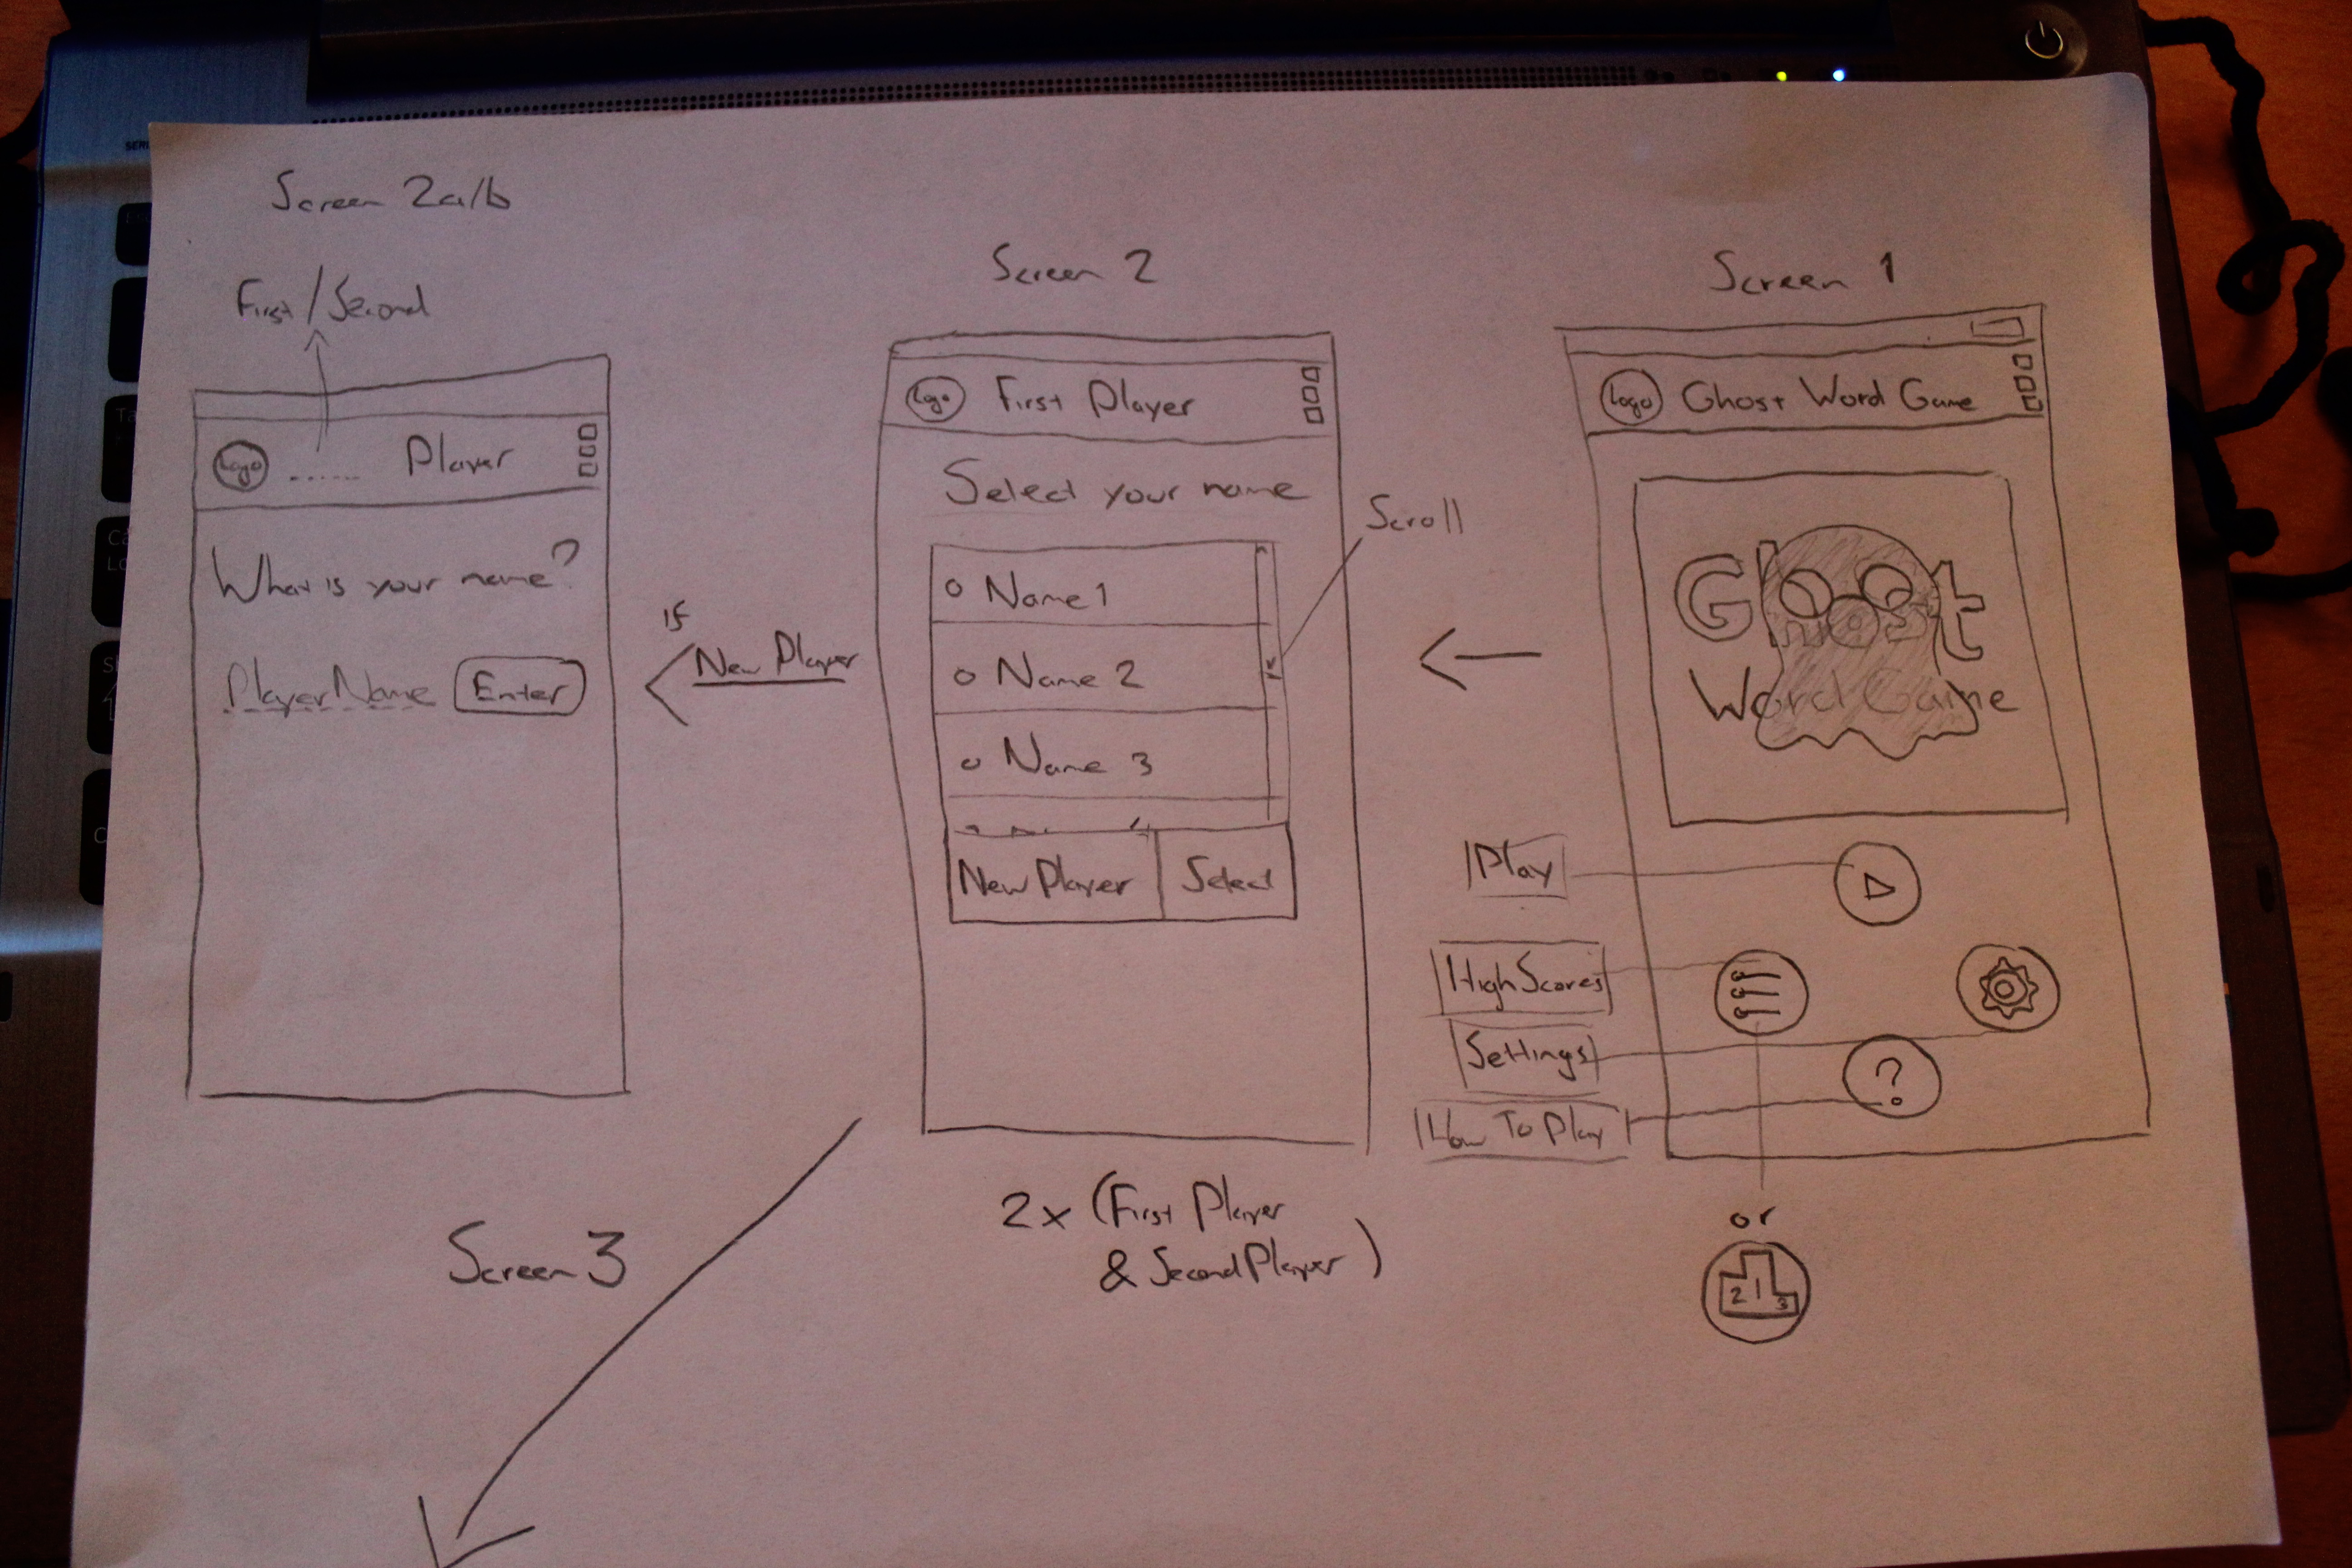 Screen 2a/b
First/Second
Logo ...... Player
What is your name?
PlayerName Enter
If
New Player
Screen 2
Logo First Player
Select your name
Scroll
Name 1
Name 2
Name 3
New Player Select
2x (First Player
& Second Player)
Screen 1
Logo Ghost Word Game
Ghost
Word Game
Play
High Scores
Settings
?
How To Play
or
2 1 3
Screen 3